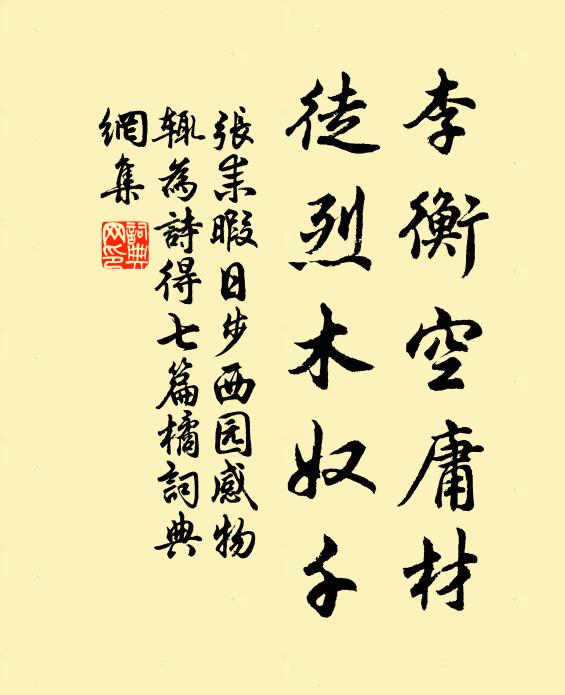 李衡空庸材
徒烈木奴千
張耒暇日步西园感物
輒為詩得七篇橘詞典
網集
詞典网印